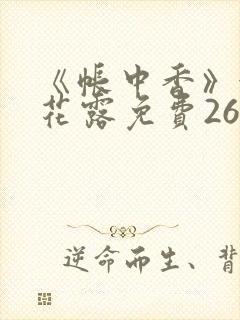 《帐中香》
花露免費26
逆命而生、背